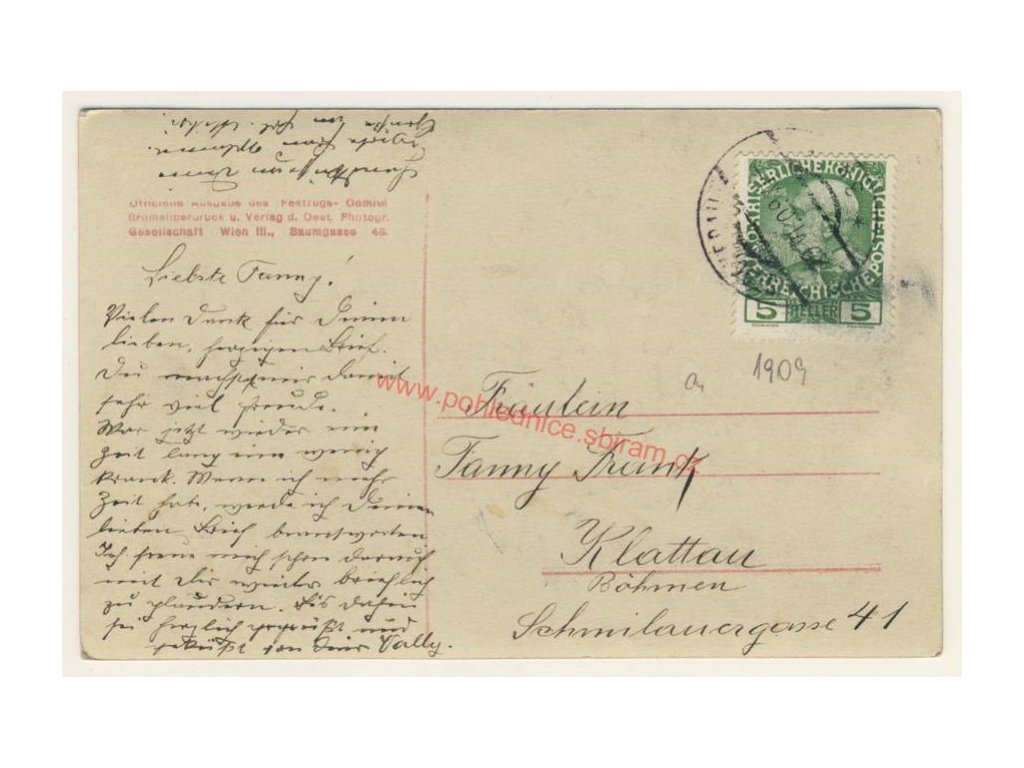 Officielle Ausgabe des Festzugs-Comité
Bromsilberdruck u. Verlag d. Oest. Photogr.
Gesellschaft Wien III., Baumgasse 43.
Liebste Fanny!
Vielen Dank für Deinen
lieben, herzigen Brief.
Du machst mir damit
sehr viel Freude.
War jetzt wieder eine
Zeit lang ein wenig
krank. Wenn ich mehr
Zeit habe, werde ich Deinen
lieben Brief beantworten
Ich freue mich schon darauf
mit Dir weiter brieflich
zu plaudern. Bis dahin
sei herzlich gegrüßt und
geküßt von Deiner Vally.
5 HELLER 5
1909
www.pohlednice.sbiram.cz
Fräulein
Fanny Frank
Klattau
Böhmen
Schmilauergasse 41